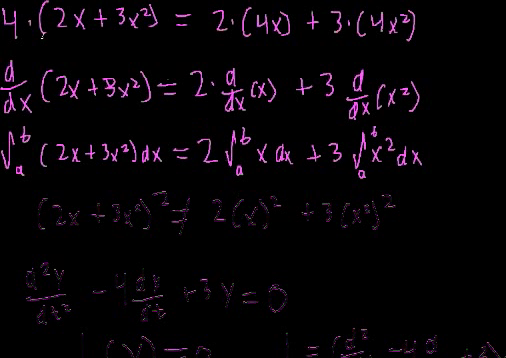 4 · (2x + 3x²) = 2·(4x) + 3·(4x²)
d/dx (2x + 3x²) = 2 · d/dx (x) + 3 d/dx (x²)
∫ₐᵇ (2x + 3x²) dx = 2 ∫ₐᵇ x dx + 3 ∫ₐᵇ x² dx
(2x + 3x²)² ≠ 2(x)² + 3(x²)²
d²y/dt² − 4 dy/dt + 3y = 0